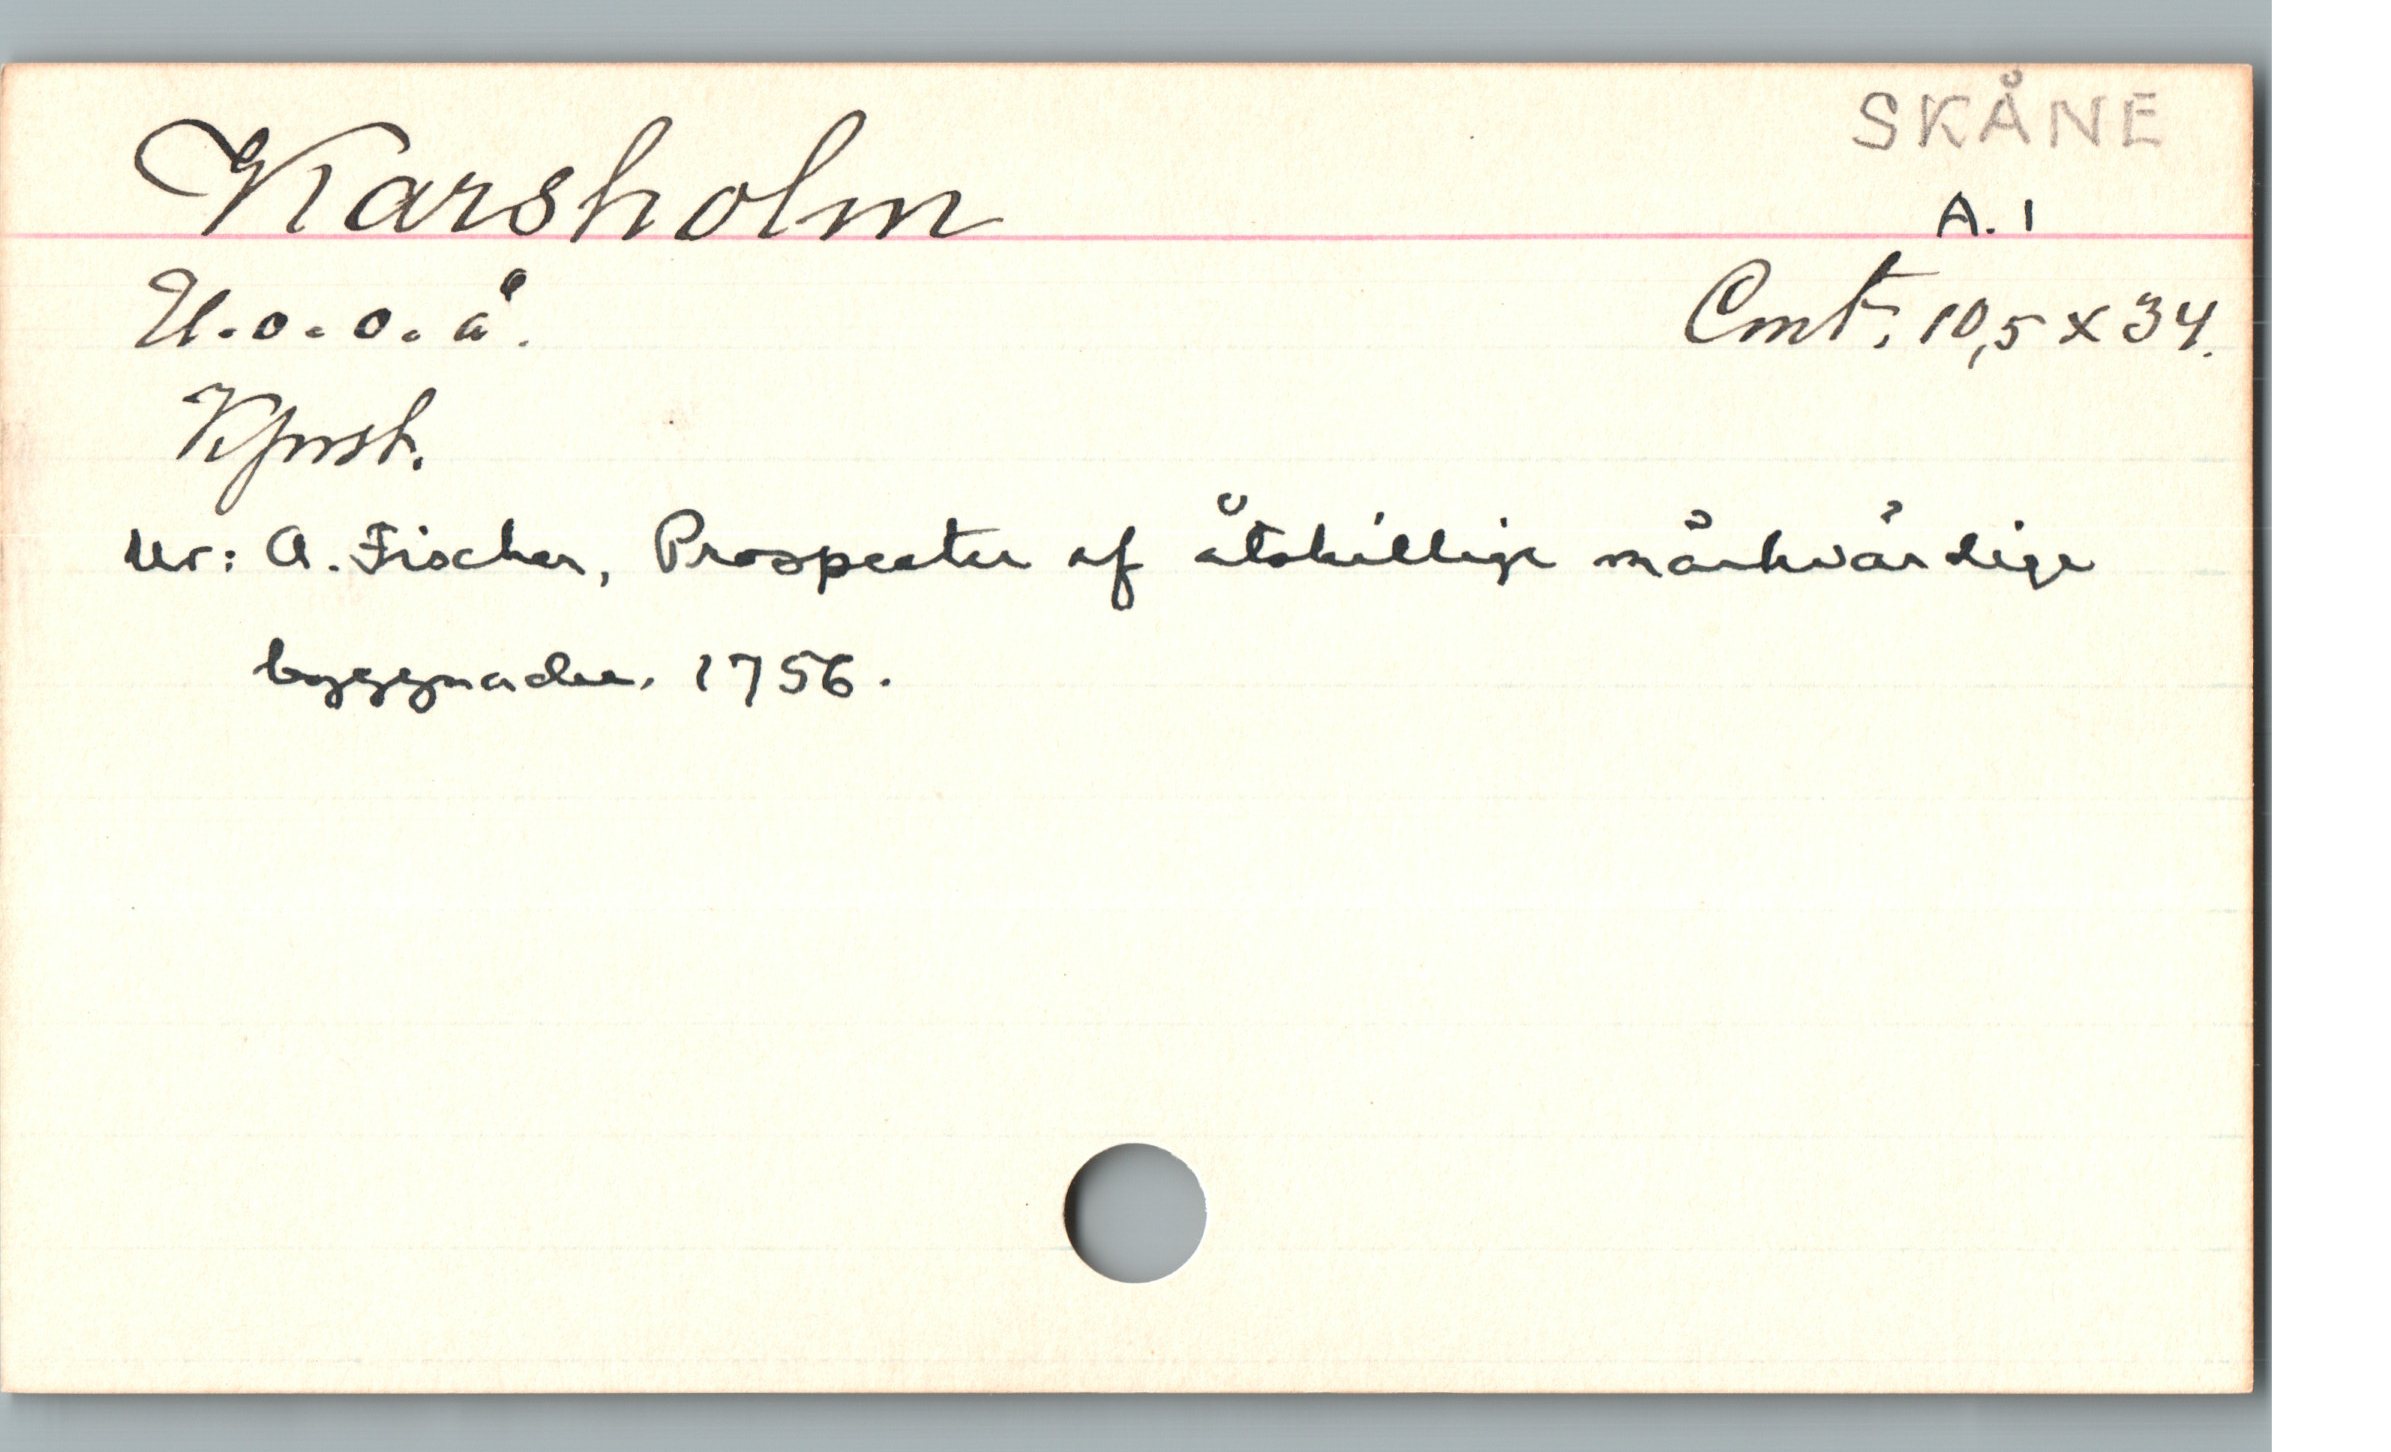 SKÅNE
Karsholm
A. 1
U. o. o. å.
Cmt. 10,5 x 34.
Kprst.
Ur: A. Fischer, Prospecter af åtskillige märkvärdige
byggnader. 1756.